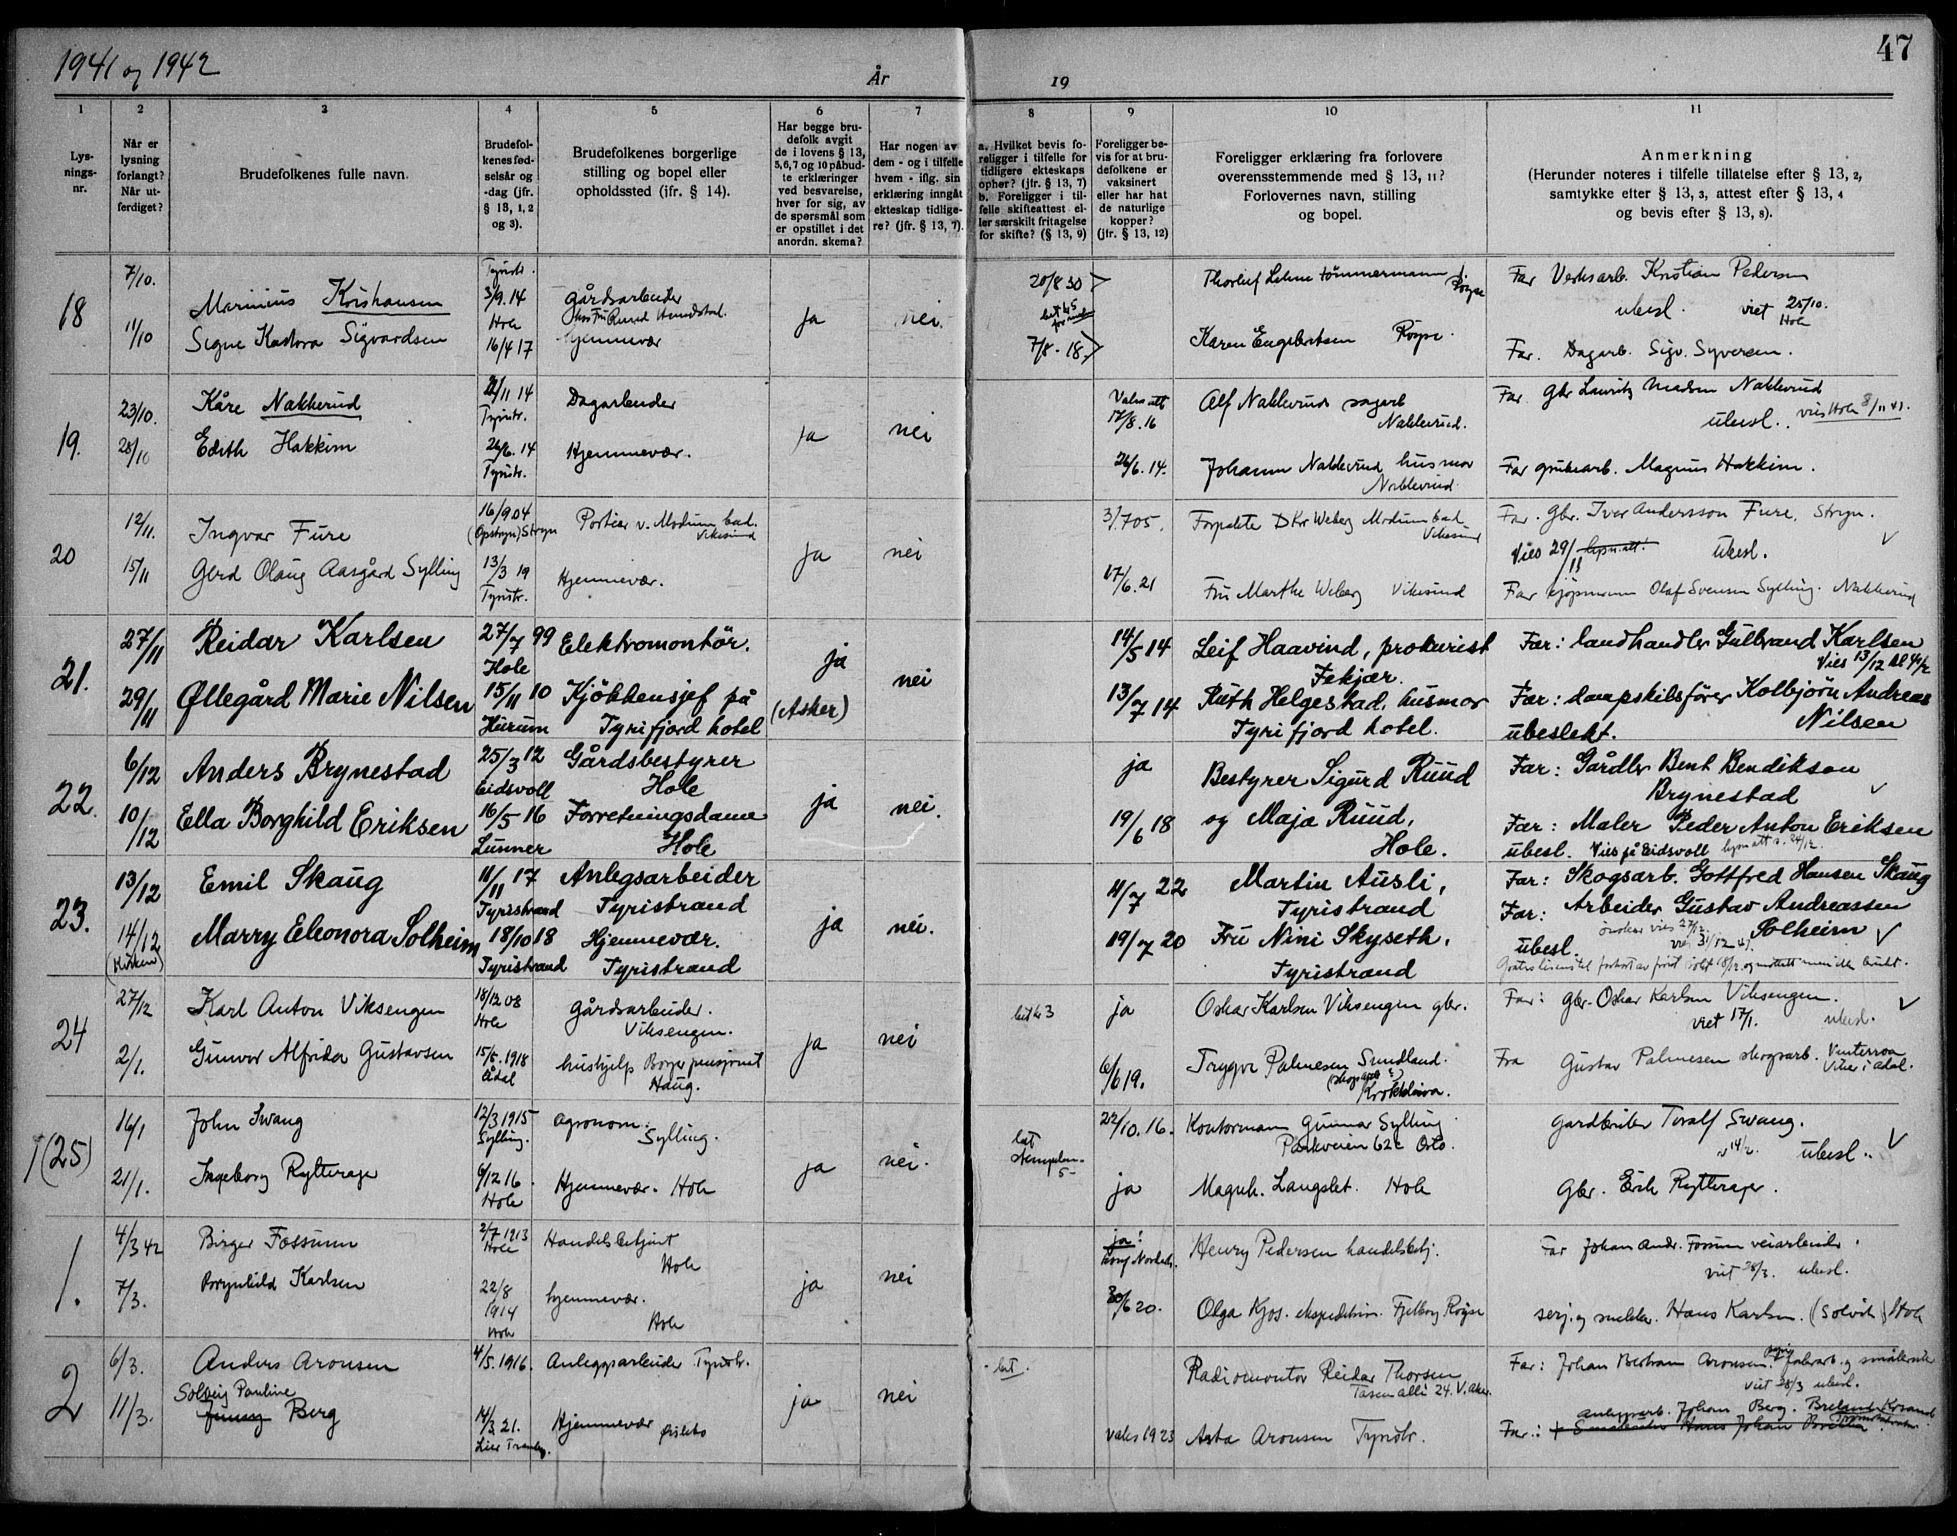 1941 og 1942
År
19
47
1
2
3
4
5
6
7
8
9
10
11
Lys-
nings-
nr.
Når er
lysning
forlangt?
Når ut-
ferdiget?
Brudefolkenes fulle navn.
Brudefol-
kenes fød-
selsår og
-dag (jfr.
§ 13, 1, 2
og 3).
Brudefolkenes borgerlige
stilling og bopel eller
opholdssted (ifr. § 14).
Har begge bru-
defolk avgit
de i lovens § 13,
5,6,7 og 10 påbud-
te erklæringer
ved besvarelse,
hver for sig, av
de spørsmål som
er opstillet i det
anordn. skema?
Har nogen av
dem - og i tilfelle
hvem - iflg. sin
erklæring inngått
ekteskap tidlige-
re? (jfr. § 13, 7).
a. Hvilket bevis fo-
religger i tilfelle for
tidligere ekteskaps
ophør? (jfr. § 13, 7)
b. Foreligger i til-
felle skifteattest el-
ler særskilt fritagelse
for skifte? (§ 13, 9)
Foreligger be-
vis for at bru-
defolkene er
vaksinert
eller har hat
de naturlige
kopper?
(jfr. § 13, 12)
Foreligger erklæring fra forlovere
overensstemmende med § 13, 11?
Forlovernes navn, stilling
og bopel.
Anmerkning
(Herunder noteres i tilfelle tillatelse efter § 13, 2,
samtykke efter § 13, 3, attest efter § 13, 4
og bevis efter § 13, 8).
18
7/10.
11/10
Marinius Kristiansen
Signe Kastora Sigvardsen
Tyristr.
3/9. 14
Hole
16/4 17
gårdsarbeider
hjemmevær
ja
nei.
20/8 30
7/8 - 18.
Thorleif Lehne tømmermann
Røyse
Karen Engebretsen Røyse.
Far Verksarb. Kristian Pedersen
ubesl. viet 25/10.
Hole
Far. Dagarb. Sigv. Syversen.
19.
23/10.
28/10
Kåre Nakkerud
Edith Hakkim
11 14
Tyristr.
26/6. 14
Tyristr.
Dagarbeider
Hjemmevær.
ja
nei
17/8. 16
26/6. 14.
Alf Nakkerud sagarb
Nakkerud.
Johanne Nakkerud husmor
Nakkerud.
Far Gbr Lauritz Madsen Nakkerud
ubesl. vies Hole 8/11 41.
Far grubearb. Magnus Hakkim.
20
12/11.
15/11
Ingvar Fure
Gerd Olaug Aasgård Sylling
16/9 04
(Opstryn) Stryn
13/3 19
Tyristr.
Portier v. Modum bad.
Vikesund
Hjemmevær.
ja
nei
3/7 05.
17/6. 21
Forpakter Weberg Modum bad
Vikesund
Fru Marthe Weberg Vikesund
Far. Gbr. Iver Andersson Fure, Stryn.
Vies 29/11 ubesl.
Far kjøpmann Olaf Svensen Sylling. Nakkerud
21.
27/11
29/11
Reidar Karlsen
Øllegård Marie Nilsen
27/7 99
Hole
15/11 10
Hurum
Elektromontör.
Kjökkensjef på
Tyrifjord hotel
ja
(Asker)
nei
14/5 14
13/7 14
Leif Haavind, prokurist
Fekjær.
Ruth Helgestad, husmor
Tyrifjord hotel.
Far: landhandler Gulbrand Karlsen
Vies 13/12 kl 4 1/2
Far: dampskibsfører Kolbjørn Andreas
Nilsen
ubeslekt.
22.
6/12
10/12
Anders Brynestad
Ella Borghild Eriksen
25/3 12
Eidsvoll
16/5 16
Lunner
Gårdsbestyrer
Hole
Forretningsdame
Hole
ja
nei.
ja
19/6 18
Bestyrer Sigurd Ruud
og Maja Ruud,
Hole.
Far: Gårdbr Bent Bendikson
Brynestad
Far: Maler Peder Anton Eriksen
ubesl. Vies på Eidsvoll
23.
13/12
14/12
Emil Skaug
Marry Eleonora Solheim
11/11 17
Tyristrand
18/10 18
Tyristrand
Anlegsarbeider
Tyristrand
Hjemmevær.
Tyristrand
ja
nei.
11/7 22
19/7 20
Martin Ausli,
Tyristrand
Fru Nini Skyseth,
Tyristrand
Far: Skogsarb. Gottfred Hansen Skaug
Far: Arbeider Gustav Andreassen
Solheim
ønsker vies 27/12.
ubesl. vies 31/12 41.
24
27/12
2/1.
Karl Anton Viksengen
Gunvor Alfrida Gustavsen
18/12 08
Hole
15/5. 1918
Ådal
gårdsarbeider.
Viksengen.
hushjelp Borger pensjonat
Haug.
ja
nei
ja
6/6 19.
Oskar Karlsen Viksengen gbr.
Trygve Palmesen Sundland.
Krokkleiva.
Far: Gbr. Oskar Karlsen Viksengen.
viet 17/1. ubesl.
Gustav Palmesen skogsarb.
Viker i Ådal.
(25)
16/1
21/1.
John Swang
Ingeborg Rytterager
12/3 1915
Sylling.
6/12 16
Hole
agronom.
Sylling.
Hjemmevær. Hole
ja
nei.
22/10. 16.
ja
Kontormann Gunnar Sylling
Parkveien 62c Oslo.
Magnh. Langslet. Hole
Gardbruker Toralf Swang.
v 14/2. ubesl.
Gbr. Erik Rytterager.
1.
4/3 42
7/3.
Birger Fossum
Brynhild Karlsen
2/7 1913
Hole
22/8
1914
Hole
Handelsbetjent
Hole
hjemmevær.
Hole
ja
nei
ja!
30/6 20.
Henry Pedersen handelsbetj.
Olga Kjos. ekspeditrise. Fjelborg Røyse
Far Johan Andr. Fossum veiarbeider.
viet 28/3. ubesl.
Hans Karlsen (Solvik) Hole
2
6/3.
11/3.
Anders Aronsen
Solveig Pauline
Berg
4/5. 1916.
14/3 21.
Lier
Anleggsarbeider Tyristr.
Hjemmevær
ja
nei
vaks 1923
Radiomontør Reidar Thorsen
Tåsen allé 24. V. Aker.
Asta Aronsen Tyristr.
Far: Johan Bertram Aronsen
viet 28/3 ubesl.
anleggsarb. Johan Berg.
Far: